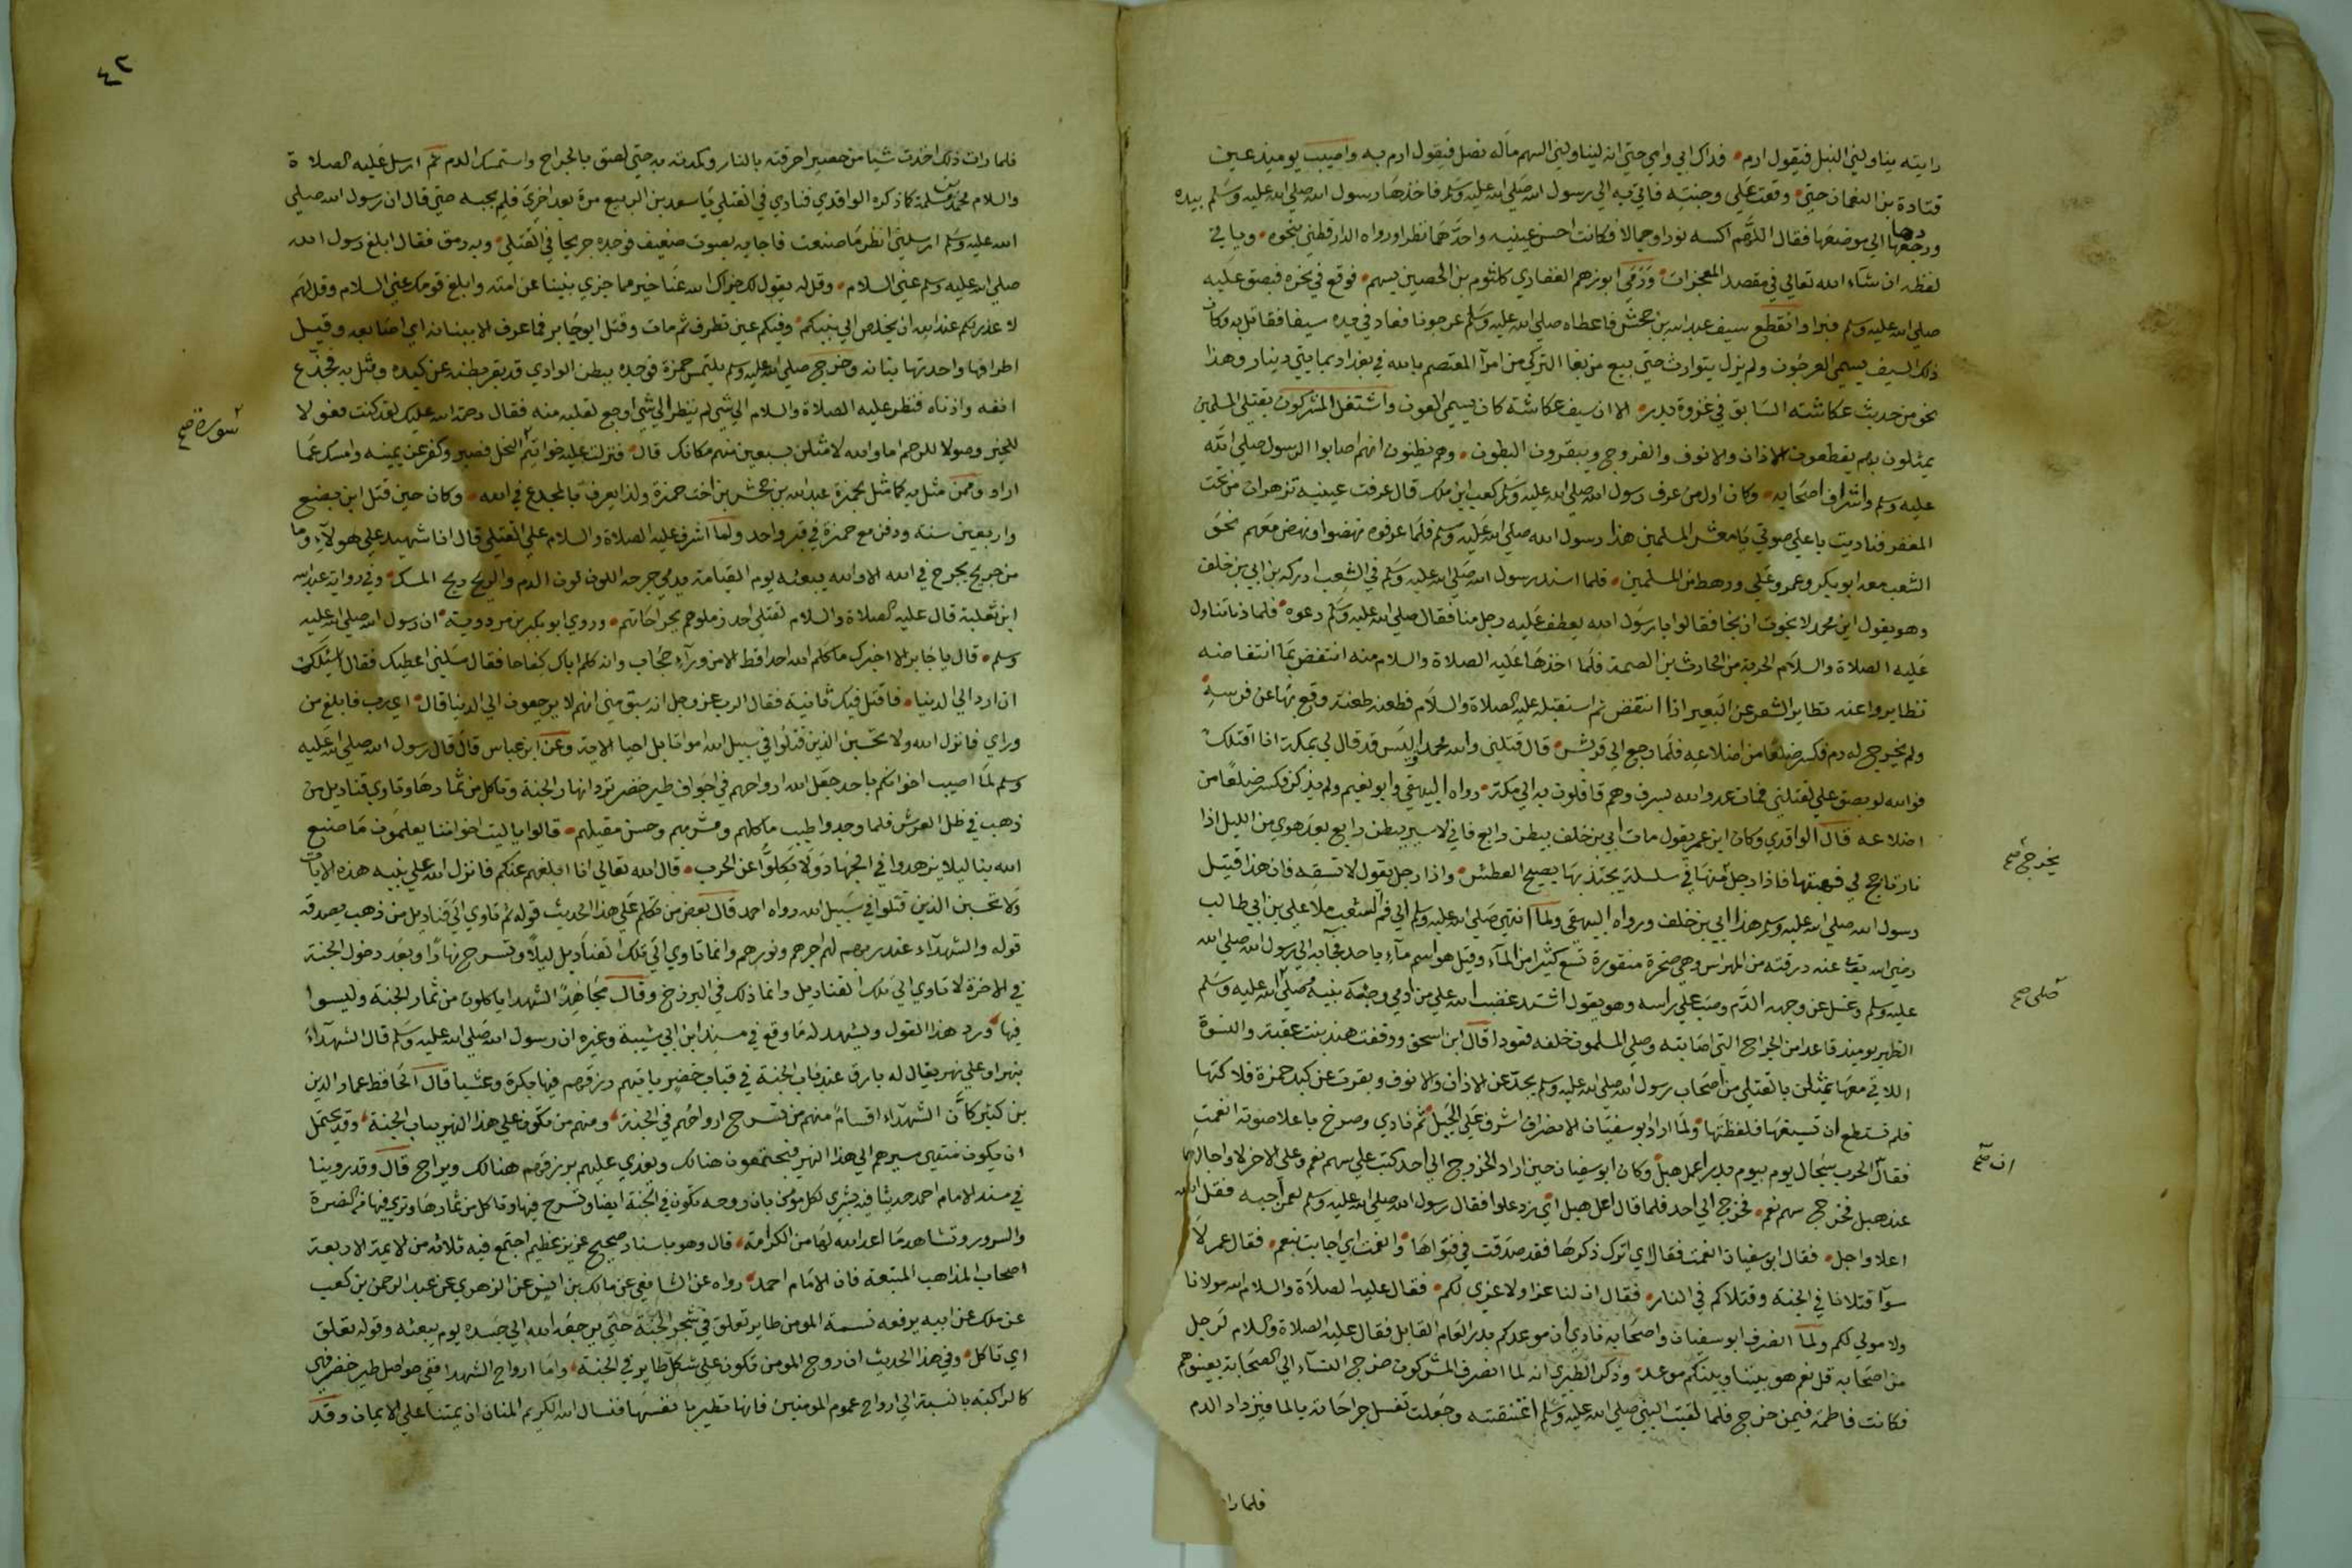 رايته يناولني النبل فيقول ارم فداك ابي وامي حتى انه ليناولني السهم ماله نصل فيقول ارم به واصيب يوميذ عين
قتادة بن النعمان حتى وقعت على وجنته فاتي به الى رسول الله صلى الله عليه وسلم فاخذها رسول الله صلى الله عليه وسلم بيده
وردها الى موضعها فقال اللهم اكسه نورا وجمالا فكانت احسن عينيه واحدهما نظرا ورواه الدارقطني بنحوه وياتي
لفظه ان شاء الله تعالى في مقصد المعجزات ورمي ابو رهم الغفاري كلثوم بن الحصين بسهم فوقع في نحره فبصق عليه
صلى الله عليه وسلم فبرا وانقطع سيف عبد الله بن جحش فاعطاه صلى الله عليه وسلم عرجونا فعاد في يده سيفا فقاتل به وكان
ذلك السيف يسمى العرجون ولم يزل يتوارث حتى بيع من بغا التركي من امرآ المعتصم بالله في بغداد بمايتي دينار وهذا
نحو من حديث عكاشة السابق في غزوة بدر الا ان سيف عكاشة كان يسمى العون واشتغل المشركون بقتلى المسلمين
يمثلون بهم يقطعون الاذان والانوف والفروج ويبقرون البطون وهم يظنون انهم اصابوا الرسول صلى الله
عليه وسلم واشراف اصحابه وكان اول من عرف رسول الله صلى الله عليه وسلم كعب ابن ملك قال عرفت عينيه تزهران من تحت
المغفر فناديت باعلى صوتي يا معشر المسلمين هذا رسول الله صلى الله عليه وسلم فلما عرفوه نهضوا ونهض معهم نحو
الشعب معه ابو بكر وعمر وعلي ورهط من المسلمين فلما اسند رسول الله صلى الله عليه وسلم في الشعب ادركه بن ابي بن خلف
وهو يقول اين محمد لا نجوت ان نجا فقالوا يا رسول الله يعطف عليه رجل منا فقال صلى الله عليه وسلم دعوه فلما دنا تناول
عليه الصلاة والسلام الحربة من الحارث بن الصمة فلما اخذها عليه الصلاة والسلام منه انتفض بها انتفاضه
تطايروا عنه تطاير الشعر عن البعير اذا انتفض ثم استقبله عليه الصلاة والسلام فطعنه طعنة وقع بها عن فرسه
ولم يخرج له دم فكسر ضلعا من اضلاعه فلما رجع الى قريش قال قتلني والله محمد اوليس قد قال لي بمكة انا اقتلك
فوالله لو بصق علي لقتلني فمات عدو الله بسرف وهم قافلون به الى مكة رواه البيهقي وابو نعيم ولم يذكر فكسر ضلعا من
اضلاعه قال الواقدي وكان ابن عمر يقول مات ابي بن خلف ببطن رابغ فاني لاسير ببطن رابغ بعد هوي من الليل اذا
نار تاجج لي فهبتها فاذا رجل منها في سلسلة يجتذبها يصيح العطش واذا رجل يقول لا تسقه فان هذا قتيل
رسول الله صلى الله عليه وسلم هذا ابي بن خلف ورواه البيهقي ولما انتهى صلى الله عليه وسلم الى فم الشعب ملا علي بن ابي طالب
رضي الله تعالى عنه درقته من المهراس وهي صخرة منقورة تسع كثيرا من الماء وقيل هو اسم ماء باحد فجآ به الى رسول الله صلى الله
عليه وسلم وغسل عن وجهه الدم وصب على راسه وهو يقول اشتد غضب الله على من ادمي وجه نبيه وصلى الله عليه وسلم
الظهر يوميذ قاعدا من الجراح التي اصابته وصلى المسلمون خلفه قعودا قال ابن اسحق ووقفت هند بنت عقبة والنسوة
اللاتي معها يمثلن بالقتلى من اصحاب رسول الله صلى الله عليه وسلم يجدعن الاذان والانوف وبقرت عن كبد حمزة فلاكتها
فلم تستطع ان تسيغها فلفظتها ولما اراد ابو سفيان الانصراف اشرف على الجبل ثم نادى وصرخ باعلا صوته انعمت
فقال الحرب سجال يوم بيوم بدر اعل هبل وكان ابو سفيان حين اراد الخروج الى احد كتب على سهم نعم وعلى الاخر لا واجالهما
عند هبل فخرج سهم نعم فخرج الى احد فلما قال اعل هبل اي زد علوا فقال رسول الله صلى الله عليه وسلم لعمر اجبه فقل الله
اعلا واجل فقال ابو سفيان انعمت فقال اي اترك ذكرها فقد صدقت في فتواها وانعمت اي اجابت بنعم فقال عمر لا
سوآ قتلانا في الجنة وقتلاكم في النار فقال ان لنا عزا ولا عزى لكم فقال عليه الصلاة والسلام الله مولانا
ولا مولى لكم ولما انصرف ابو سفيان واصحابه نادى ان موعدكم بدر العام القابل فقال عليه الصلاة والسلام لرجل
من اصحابه قل نعم هو بيننا وبينكم موعد وذكر الطبري انه لما انصرف المشركون خرج النسآء الى الصحابة يعينوهم
فكانت فاطمة فيمن خرج فلما لقيت النبي صلى الله عليه وسلم اعتنقته وجعلت تغسل جراحاته بالما فيزداد الدم
فلما را
يخرج صح
صلى صح
ان صح
٤٢
فلما رات ذلك اخذت شيا من حصير احرقته بالنار وكمدته به حتى لصق بالجراح واستمسك الدم ثم ارسل عليه الصلاة
والسلام محمد بن مسلمة كما ذكره الواقدي فنادى في القتلى يا سعد بن الربيع مرة بعد اخرى فلم يجبه حتى قال ان رسول الله صلى
الله عليه وسلم ارسلني انظر ما صنعت فاجابه بصوت ضعيف فوجده جريحا في القتلى وبه رمق فقال ابلغ رسول الله
صلى الله عليه وسلم عني السلام وقل له يقول لك جزاك الله عنا خير مما جزي نبينا عن امته وابلغ قومك عني السلام وقل لهم
لا عذر لكم عند الله ان يخلص الى نبيكم وفيكم عين تطرف ثم مات وقتل ابو جابر فما عرف الا ببنانه اي اصابعه وقيل
اطرافها واحدتها بنانه وخرج صلى الله عليه وسلم يلتمس حمزة فوجده ببطن الوادي قد بقر بطنه عن كبده ومثل به فجدع
انفه واذناه فنظر عليه الصلاة والسلام الى شي لم ينظر الى شي اوجع لقلبه منه فقال رحمة الله عليك لقد كنت فعولا
للخير وصولا للرحم اما والله لامثلن بسبعين منهم مكانك قال فنزلت عليه خواتيم النحل فصبر وكفر عن يمينه وامسك عما
اراد وممن مثل به كما مثل بحمزة عبد الله بن جحش بن اخت حمزة ولذا يعرف بالمجدع في الله وكان حين قتل ابن بضع
واربعين سنة ودفن مع حمزة في قبر واحد ولما اشرف عليه الصلاة والسلام على القتلى قال انا شهيد على هولآء وما
من جريح يجرح في الله الا والله يبعثه يوم القيامة يدمي جرحه اللون لون الدم والريح ريح المسك وفي رواية عبد الله
ابن ثعلبة قال عليه الصلاة والسلام لقتلى احد زملوهم بجراحاتهم وروي ابو بكر بن مردوية ان رسول الله صلى الله عليه
وسلم قال يا جابر الا اخبرك ما كلم الله احدا قط الا من ورآء حجاب وانه كلم اباك كفاحا فقال سلني اعطيك فقال اسئلك
ان ارد الى الدنيا فاقتل فيك ثانية فقال الرب عز وجل انه سبق مني انهم لا يرجعون الى الدنيا قال اي رب فابلغ من
وراي فانزل الله ولا تحسبن الذين قتلوا في سبيل الله امواتا بل احيا الاية وعن ابن عباس قال قال رسول الله صلى الله عليه
وسلم لما اصيب اخوانكم باحد جعل الله ارواحهم في اجواف طير خضر ترد انهار الجنة وتاكل من ثمارها وتاوي قناديل من
ذهب في ظل العرش فلما وجدوا طيب ماكلهم ومشربهم وحسن مقيلهم قالوا يا ليت اخواننا يعلمون ما صنع
الله بنا ليلا يزهدوا في الجهاد ولا ينكلوا عن الحرب قال الله تعالى انا ابلغهم عنكم فانزل الله على نبيه هذه الايات
ولا تحسبن الذين قتلوا في سبيل الله رواه احمد قال بعض من تكلم على هذا الحديث قوله ثم تاوي الى قناديل من ذهب يصدقه
قوله والشهدآء عند ربهم لهم اجرهم ونورهم وانما تاوي الى تلك القناديل ليلا وتسرح نهارا وبعد دخول الجنة
في الاخرة لا تاوي الى تلك القناديل وانما ذلك في البرزخ وقال مجاهد الشهدا ياكلون من ثمار الجنة وليسوا
فيها ورد هذا القول ويشهد له ما وقع في مسند ابن ابي شيبة وغيره ان رسول الله صلى الله عليه وسلم قال الشهدآء
بنهر او على نهر يقال له بارق عند باب الجنة في قباب خضر ياتيهم رزقهم فيها بكرة وعشيا قال الحافظ عماد الدين
بن كثير كان الشهدآء اقسام منهم من تسرح ارواحهم في الجنة ومنهم من يكون على هذا النهر بباب الجنة وقد يحتمل
ان يكون منتهى سيرهم الى هذا النهر فيجتمعون هنالك ويغدي عليهم برزقهم هنالك ويراح قال وقد روينا
في مسند الامام احمد حديثا فيه بشرى لكل مؤمن بان روحه تكون في الجنة ايضا وتسرح فيها وتاكل من ثمارها وترى فيها من النضرة
والسرور وتشاهد ما اعد الله لها من الكرامة قال وهو باسناد صحيح عزيز عظيم اجتمع فيه ثلاثة من الايمة الاربعة
اصحاب المذاهب المتبعة فان الامام احمد رواه عن الشافعي عن مالك بن انس عن الزهري عن عبد الرحمن بن كعب
عن ملك عن ابيه يرفعه نسمة المومن طاير تعلق في شجر الجنة حتى يرجعه الله الى جسده يوم يبعثه وقوله تعلق
اي تاكل وفي هذا الحديث ان روح المومن تكون على شكل طاير في الجنة واما ارواح الشهدا ففي حواصل طير خضر فهي
كالراكبة بالنسبة الى ارواح عموم المومنين فانها تطير بانفسها فنسال الله الكريم المنان ان يميتنا على الايمان وقد